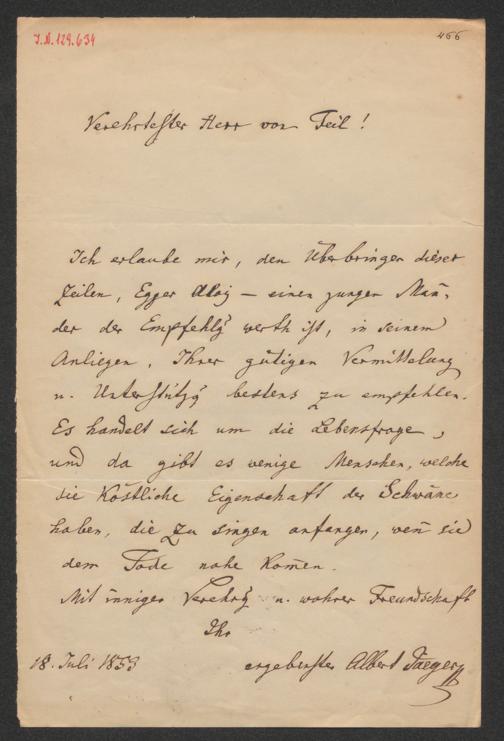 J.N. 129.634
466
Verehrtester Herr von Feil!
Ich erlaube mir, den Überbringer dieser
Zeilen, Egger Aloiz – einen jungen Mañ,
der der Empfehlg werth ist, in seinem
Anliegen, Ihrer gütigen Vermittelung
u. Unterstützg bestens zu empfehlen.
Es handelt sich um die Lebensfrage,
und da gibt es wenige Menschen, welche
die köstliche Eigenschaft der Schwäne
haben, die zu singen anfangen, weñ sie
dem Tode nahe kom̄en.
Mit inniger Verehrg u. wahrer Freundschaft
Ihr
18. Juli 1853 ergebenster Albert Jaeger